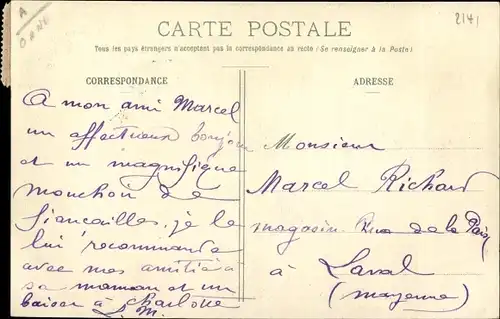 A
ORNE
2141
CARTE POSTALE
Tous les pays étrangers n'acceptent pas la correspondance au recto (Se renseigner à la Poste)
CORRESPONDANCE
A mon ami Marcel
un affectueux bonjour
et un magnifique
mouchoir de
fiancailles, je le
lui recommande
avec mes amitiés à
sa maman et un
baiser à Charlotte
L. M.
ADRESSE
Monsieur
Marcel Richard
magasin Rue de la Paix
à Laval
(Mayenne)